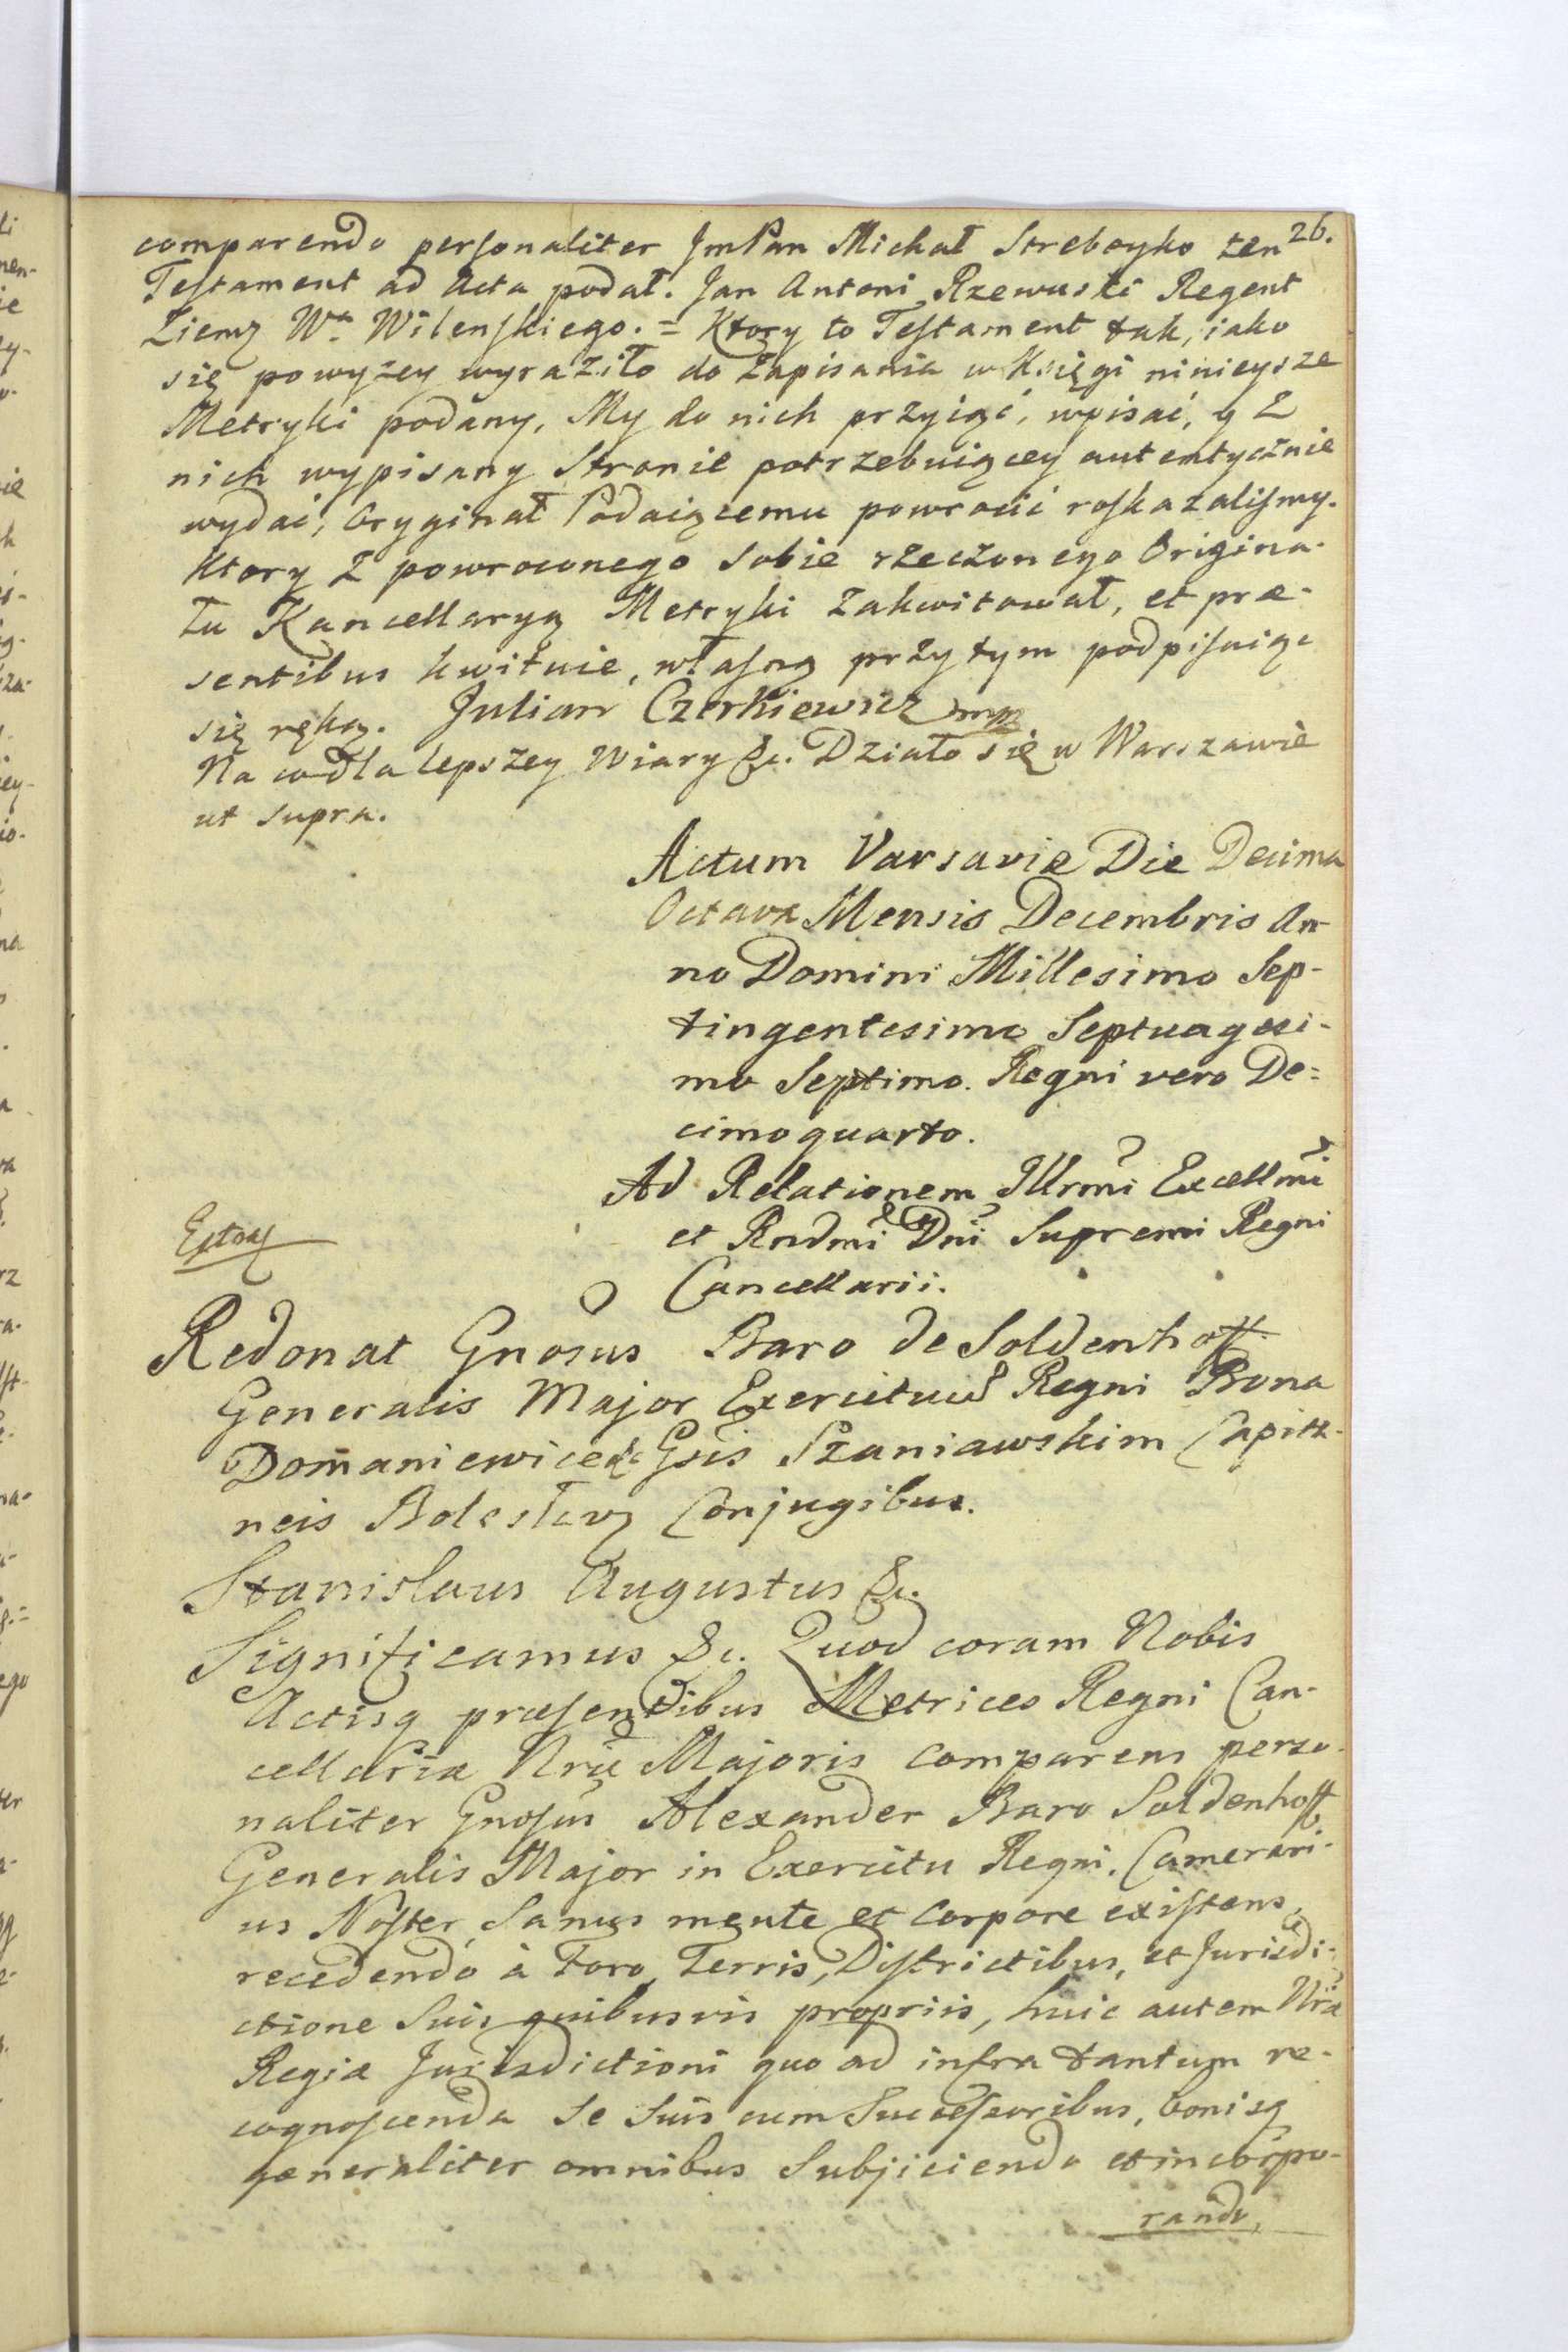 26.
comparendo personaliter JmPan Michał Streboyko ten
Testament ad Acta podał. Jan Antoni Rzewuski Regent
Ziemz Wa Wilenskiego. = Ktory to Testament tak, iako
się powyzey wyraziło do zapisania w Księgi ninieysze
Metryki podany, My do nich przyiąć, wpisać, y z
nich wypisany Stronie potrzebuiącey autentycznie
wydać, Oryginał Podaiącemu powrocić roskazalismy.
Ktory z powroconego sobie rzeczonego Origina-
łu Kancellaryą Metryki zakwitował, et præ-
sentibus kwituie, własną przytym podpisuiąc
się ręką. Julian Czerkiewicz mp
Na co dla lepszey Wiary &c. Działo się w Warszawie
ut supra.
Actum Varsaviæ Die Decima
Octava Mensis Decembris An-
no Domini Millesimo Sep-
tingentesimo Septuagesi-
mo Septimo. Regni vero De=
cimo quarto.
Ad Relationem Illrmi Excellmi
et Rndmi Dni Supremi Regni
Cancellarii.
Redonat Gnosus Baro de Soldenhoff
Generalis Major Exercituus Regni Bona
Domaniewice &c Gsis Szaniawskim Capita-
neis Bolesław Conjugibus.
Stanislaus Augustus &c.
Significamus &c. Quod coram Nobis
Actisq præsentibus Metrices Regni Can-
cellariæ Nræ Majoris comparens perso-
naliter Gnosus Alexander Baro Soldenhoff
Generalis Major in Exercitu Regni, Camerari-
us Noster, Sanus mente et Corpore existens,
recedendo à Foro, Terris, Districtibus, et Jurisdi-
ctione Suis quibusvis propriis, huic autem Nræ
Regiæ Jurisdictioni quo ad infra tantum re-
cognoscenda Se Suis cum Successoribus, bonisq
generaliter omnibus Subjiciendo et incorpo-
rando,